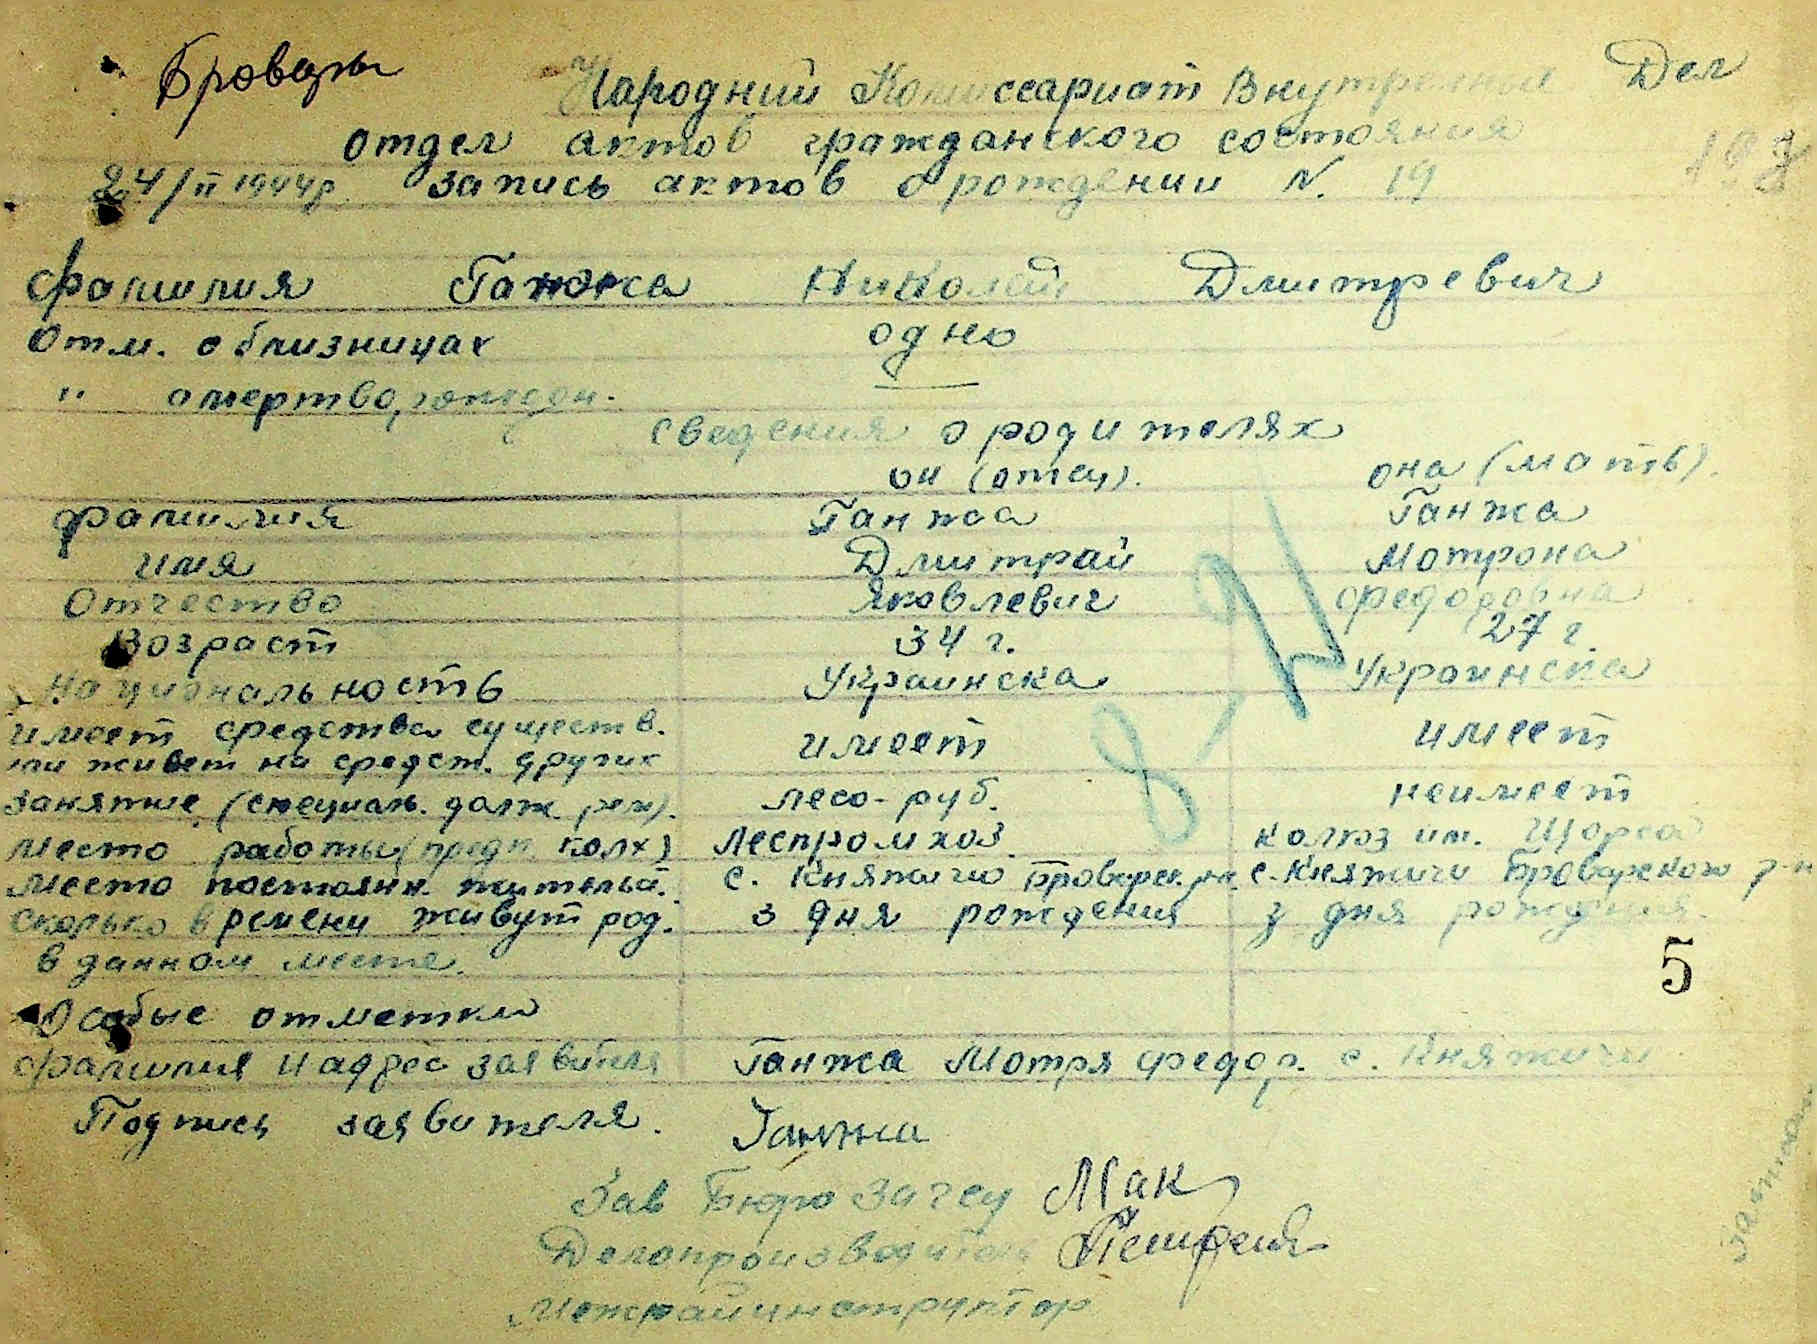 Бровары
Народний Комиссариат Внутренних Дел
отдел актов гражданского состояния
24/II 1944р. запись актов о рождении N. 19
фамилия Ганжа Николай Дмитревич
Отм. о близницах одно
" о мертворожден. —
сведения о родителях
он (отец). она (мать).
фамилия Ганжа Ганжа
имя Дмитрий Мотрона
Отчество Яковлевич Федоровна
Возраст 34 г. 27 г.
Национальность Украинска Украинска
имеет средства существ. имеет имеет
или живет на средст. других
занятие (специаль. долж. рем). лесо-руб. неимеет
место работы (предп. колх) Леспромхоз. колхоз им. Щорса
место постоянн. жительст. с. Княжичи Броварск. рн. с. Княжичи Броварского р-н
сколько времени живут род. з дня рождения з дня рождения.
в данном месте.
5
Особые отметки
фамилия и адрес заявителя Ганжа Мотря федор. с. Княжичи
Подпись заявителя. Ганжа
Зав Бюро Загсу Мак
Делопроизводитель
Межрайинструктор